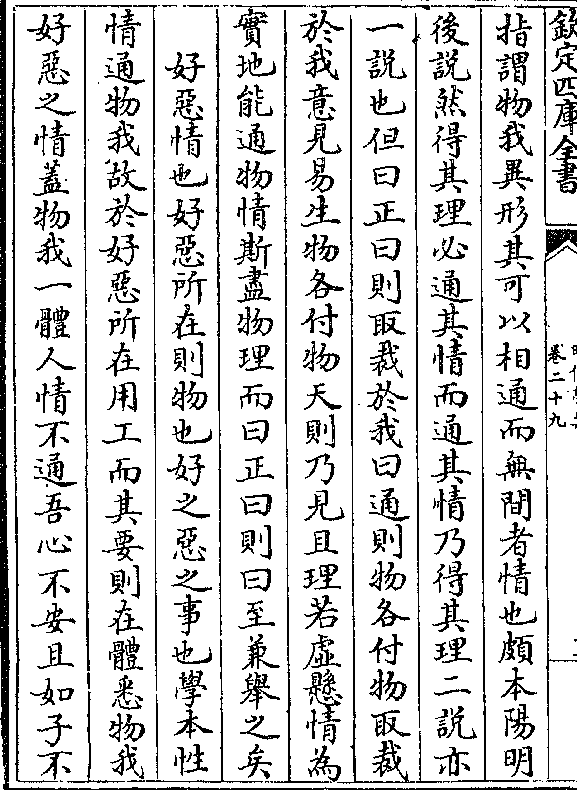 欽定四庫全書
卷二十九
指謂物我異形其可以相通而無間者情也頗本陽明
後説然得其理必通其情而通其情乃得其理二説亦
一説也但曰正曰則取裁於我曰通則物各付物取裁
於我意見易生物各付物天則乃見且理若虛懸情為
實地能通物情斯盡物理而曰正曰則曰至兼舉之矣
好惡情也好惡所在則物也好之惡之事也學本性
情通物我故於好惡所在用工而其要則在體悉物我
好惡之情蓋物我一體人情不通吾心不安且如子不